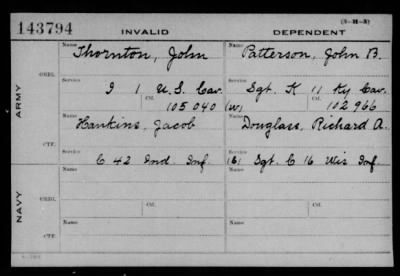 143794 INVALID DEPENDENT (3-M-3)
Name Name
Thornton, John Patterson, John B.
ARMY ORIG. Service Service
I 1 U.S. Cav. Sgt. K 11 Ky Cav.
Ctf. 105040 (W) Ctf. 102966
Name Name
Hankins, Jacob Douglass, Richard A.
CTF. Service Service
C 42 Ind. Inf. (B) Sgt. C 16 Wis Inf.
NAVY Name Name
ORIG. Ctf. Ctf.
Name Name
CTF.